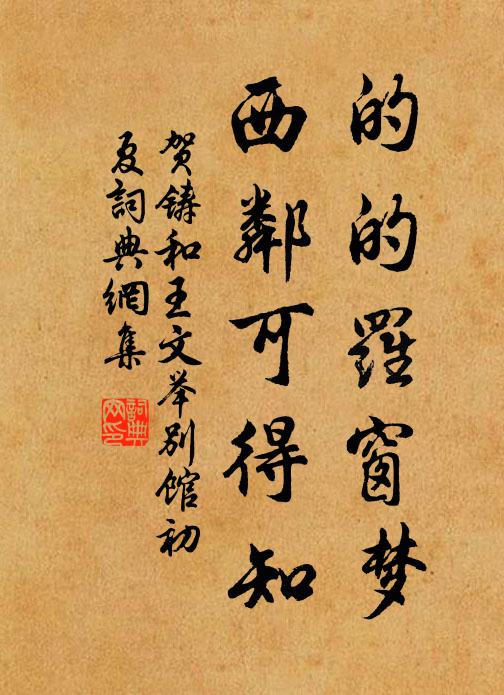 的的羅窗梦
西鄰可得知
贺鑄和王文举别馆初
夏詞典網集
詞典网印